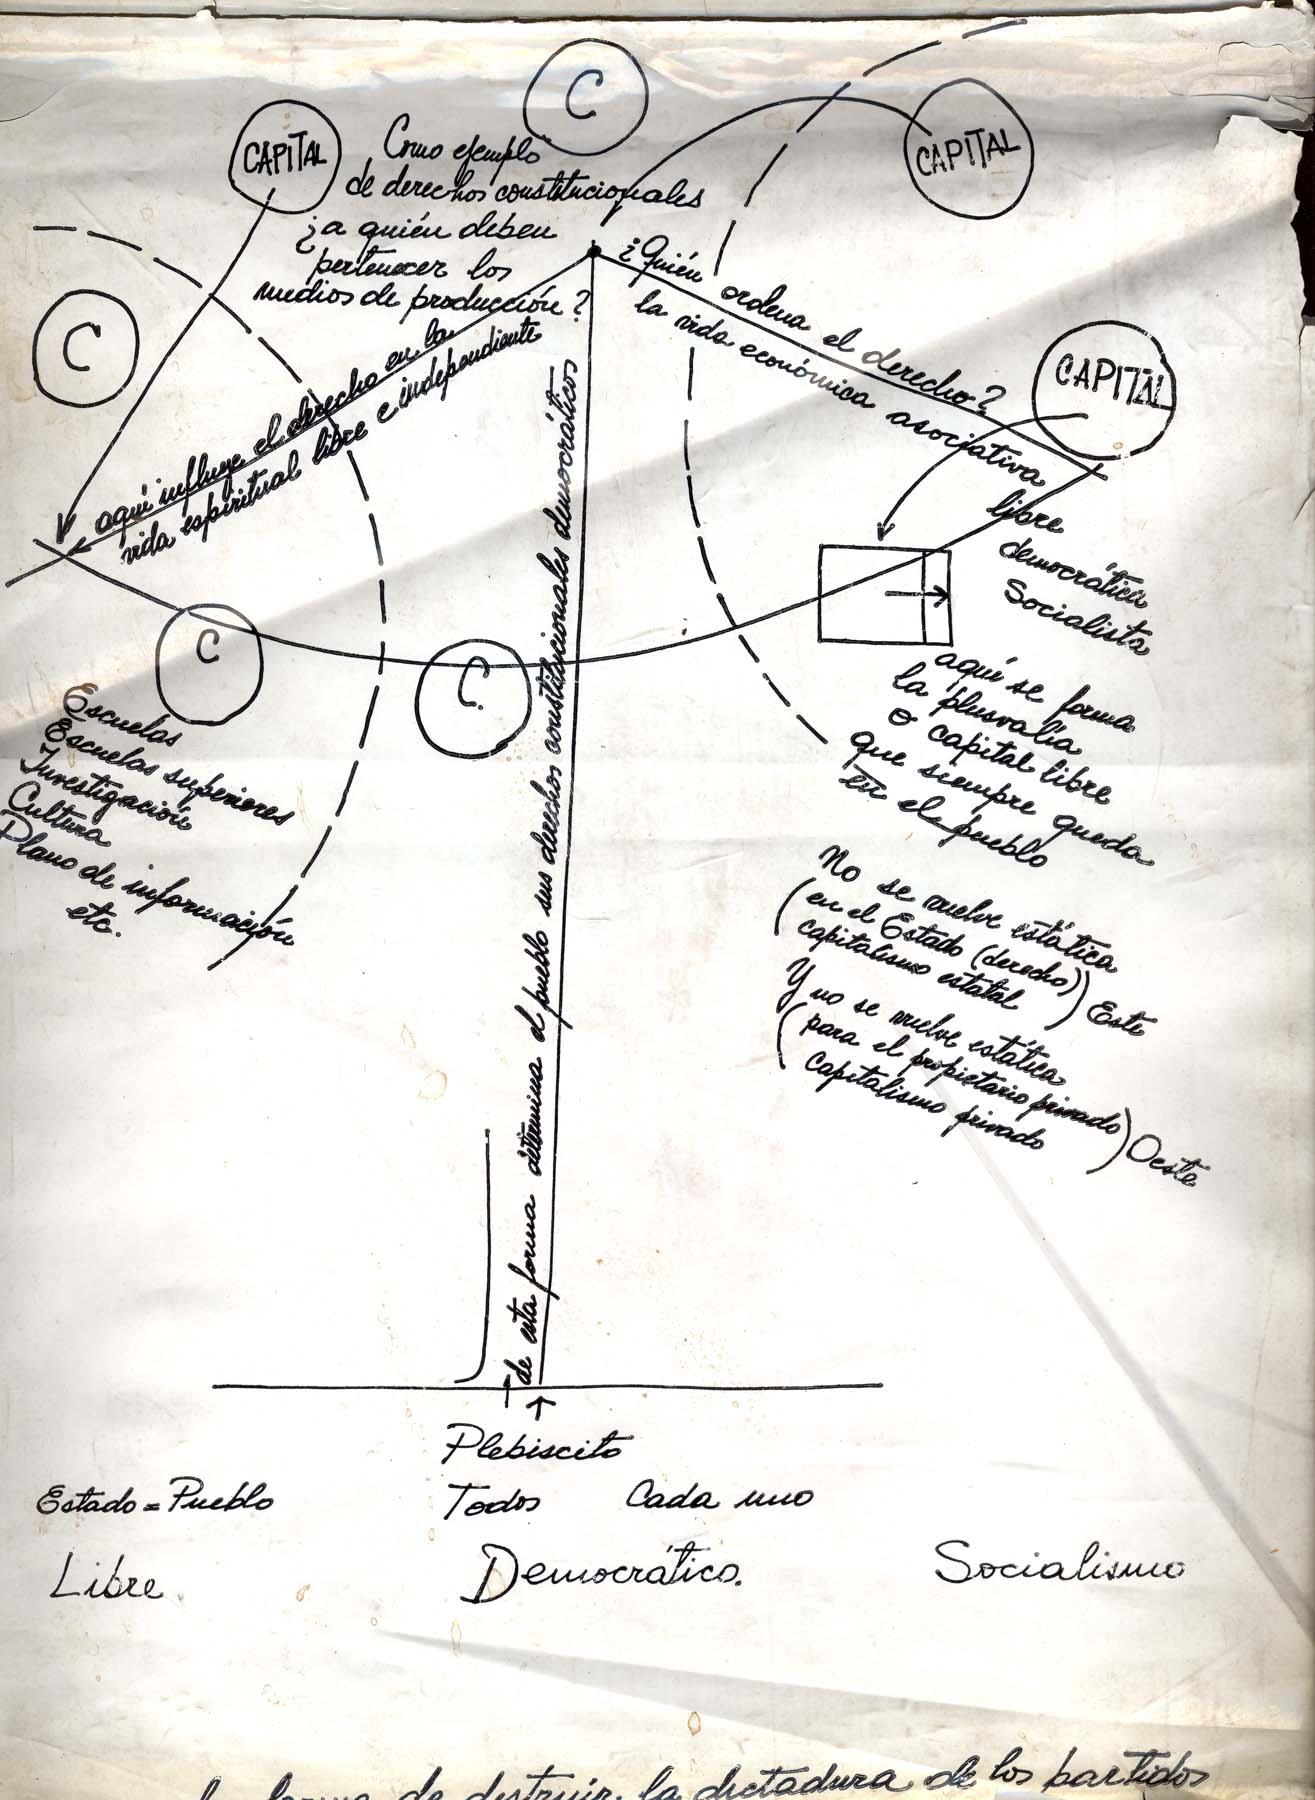 C
CAPITAL
CAPITAL
Como ejemplo
de derechos constitucionales
¿a quién deben
pertenecer los
medios de producción?
C
¿Quién ordena el derecho?
la vida económica asociativa
libre
democrática
Socialista
CAPITAL
aquí influye el derecho en la
vida espiritual libre e independiente
C
C
Escuelas
Escuelas superiores
Investigación
Cultura
Plano de información
etc.
aquí se forma
la plusvalía
o capital libre
que siempre queda
en el pueblo
No se vuelve estática
(en el Estado (derecho)
capitalismo estatal) Este
Y no se vuelve estática
(para el propietario privado
Capitalismo privado) Oeste
de esta forma determina el pueblo sus derechos constitucionales democráticos
Plebiscito
Estado = Pueblo Todos Cada uno
Libre Democrático. Socialismo
forma de destruir la dictadura de los partidos